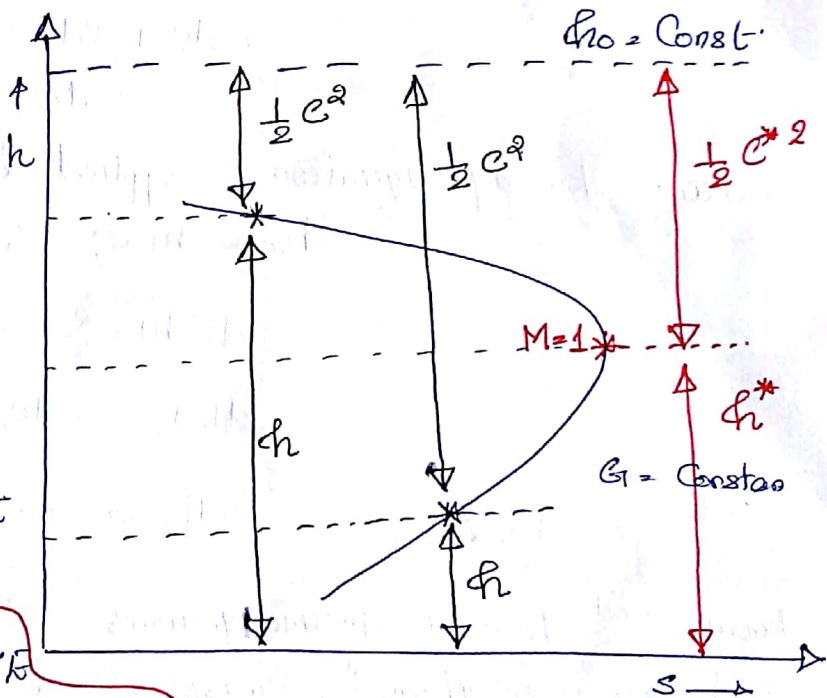 h₀ = Const.
h
½ C²
½ C²
½ C*²
M=1
h*
h
G = Constan
h
s